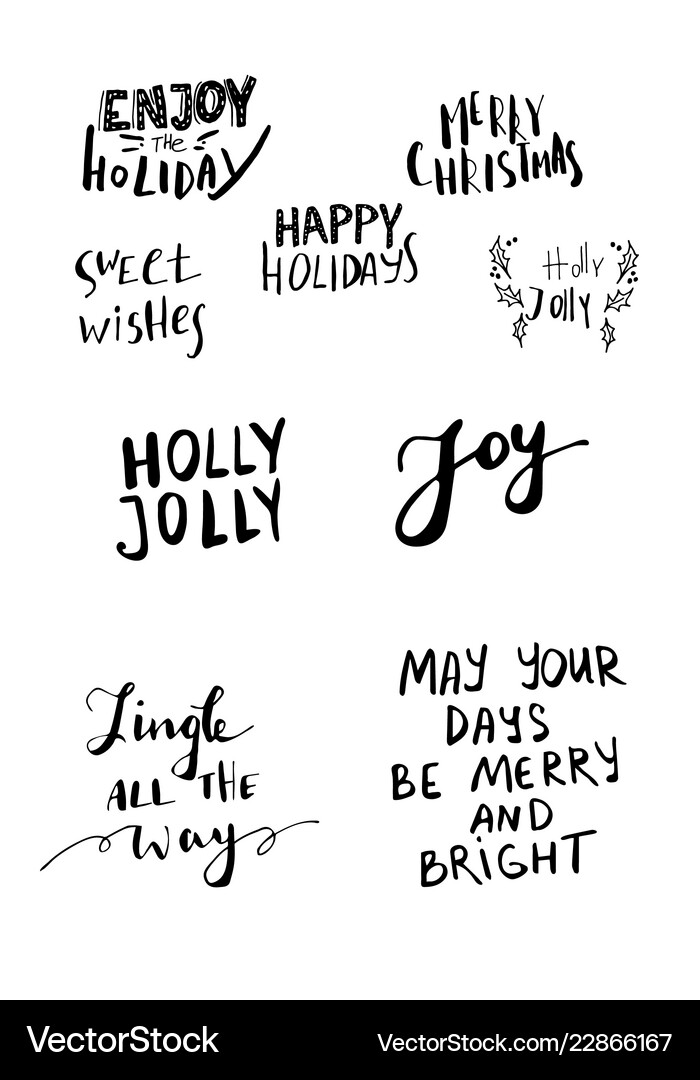 ENJOY
THE
HOLIDAY
MERRY
CHRISTMAS
HAPPY
HOLIDAYS
SWEET
WISHES
Holly
Jolly
HOLLY
JOLLY
Joy
Jingle
ALL THE
way
MAY YOUR
DAYS
BE MERRY
AND
BRiGHT
VectorStock®
VectorStock.com/22866167